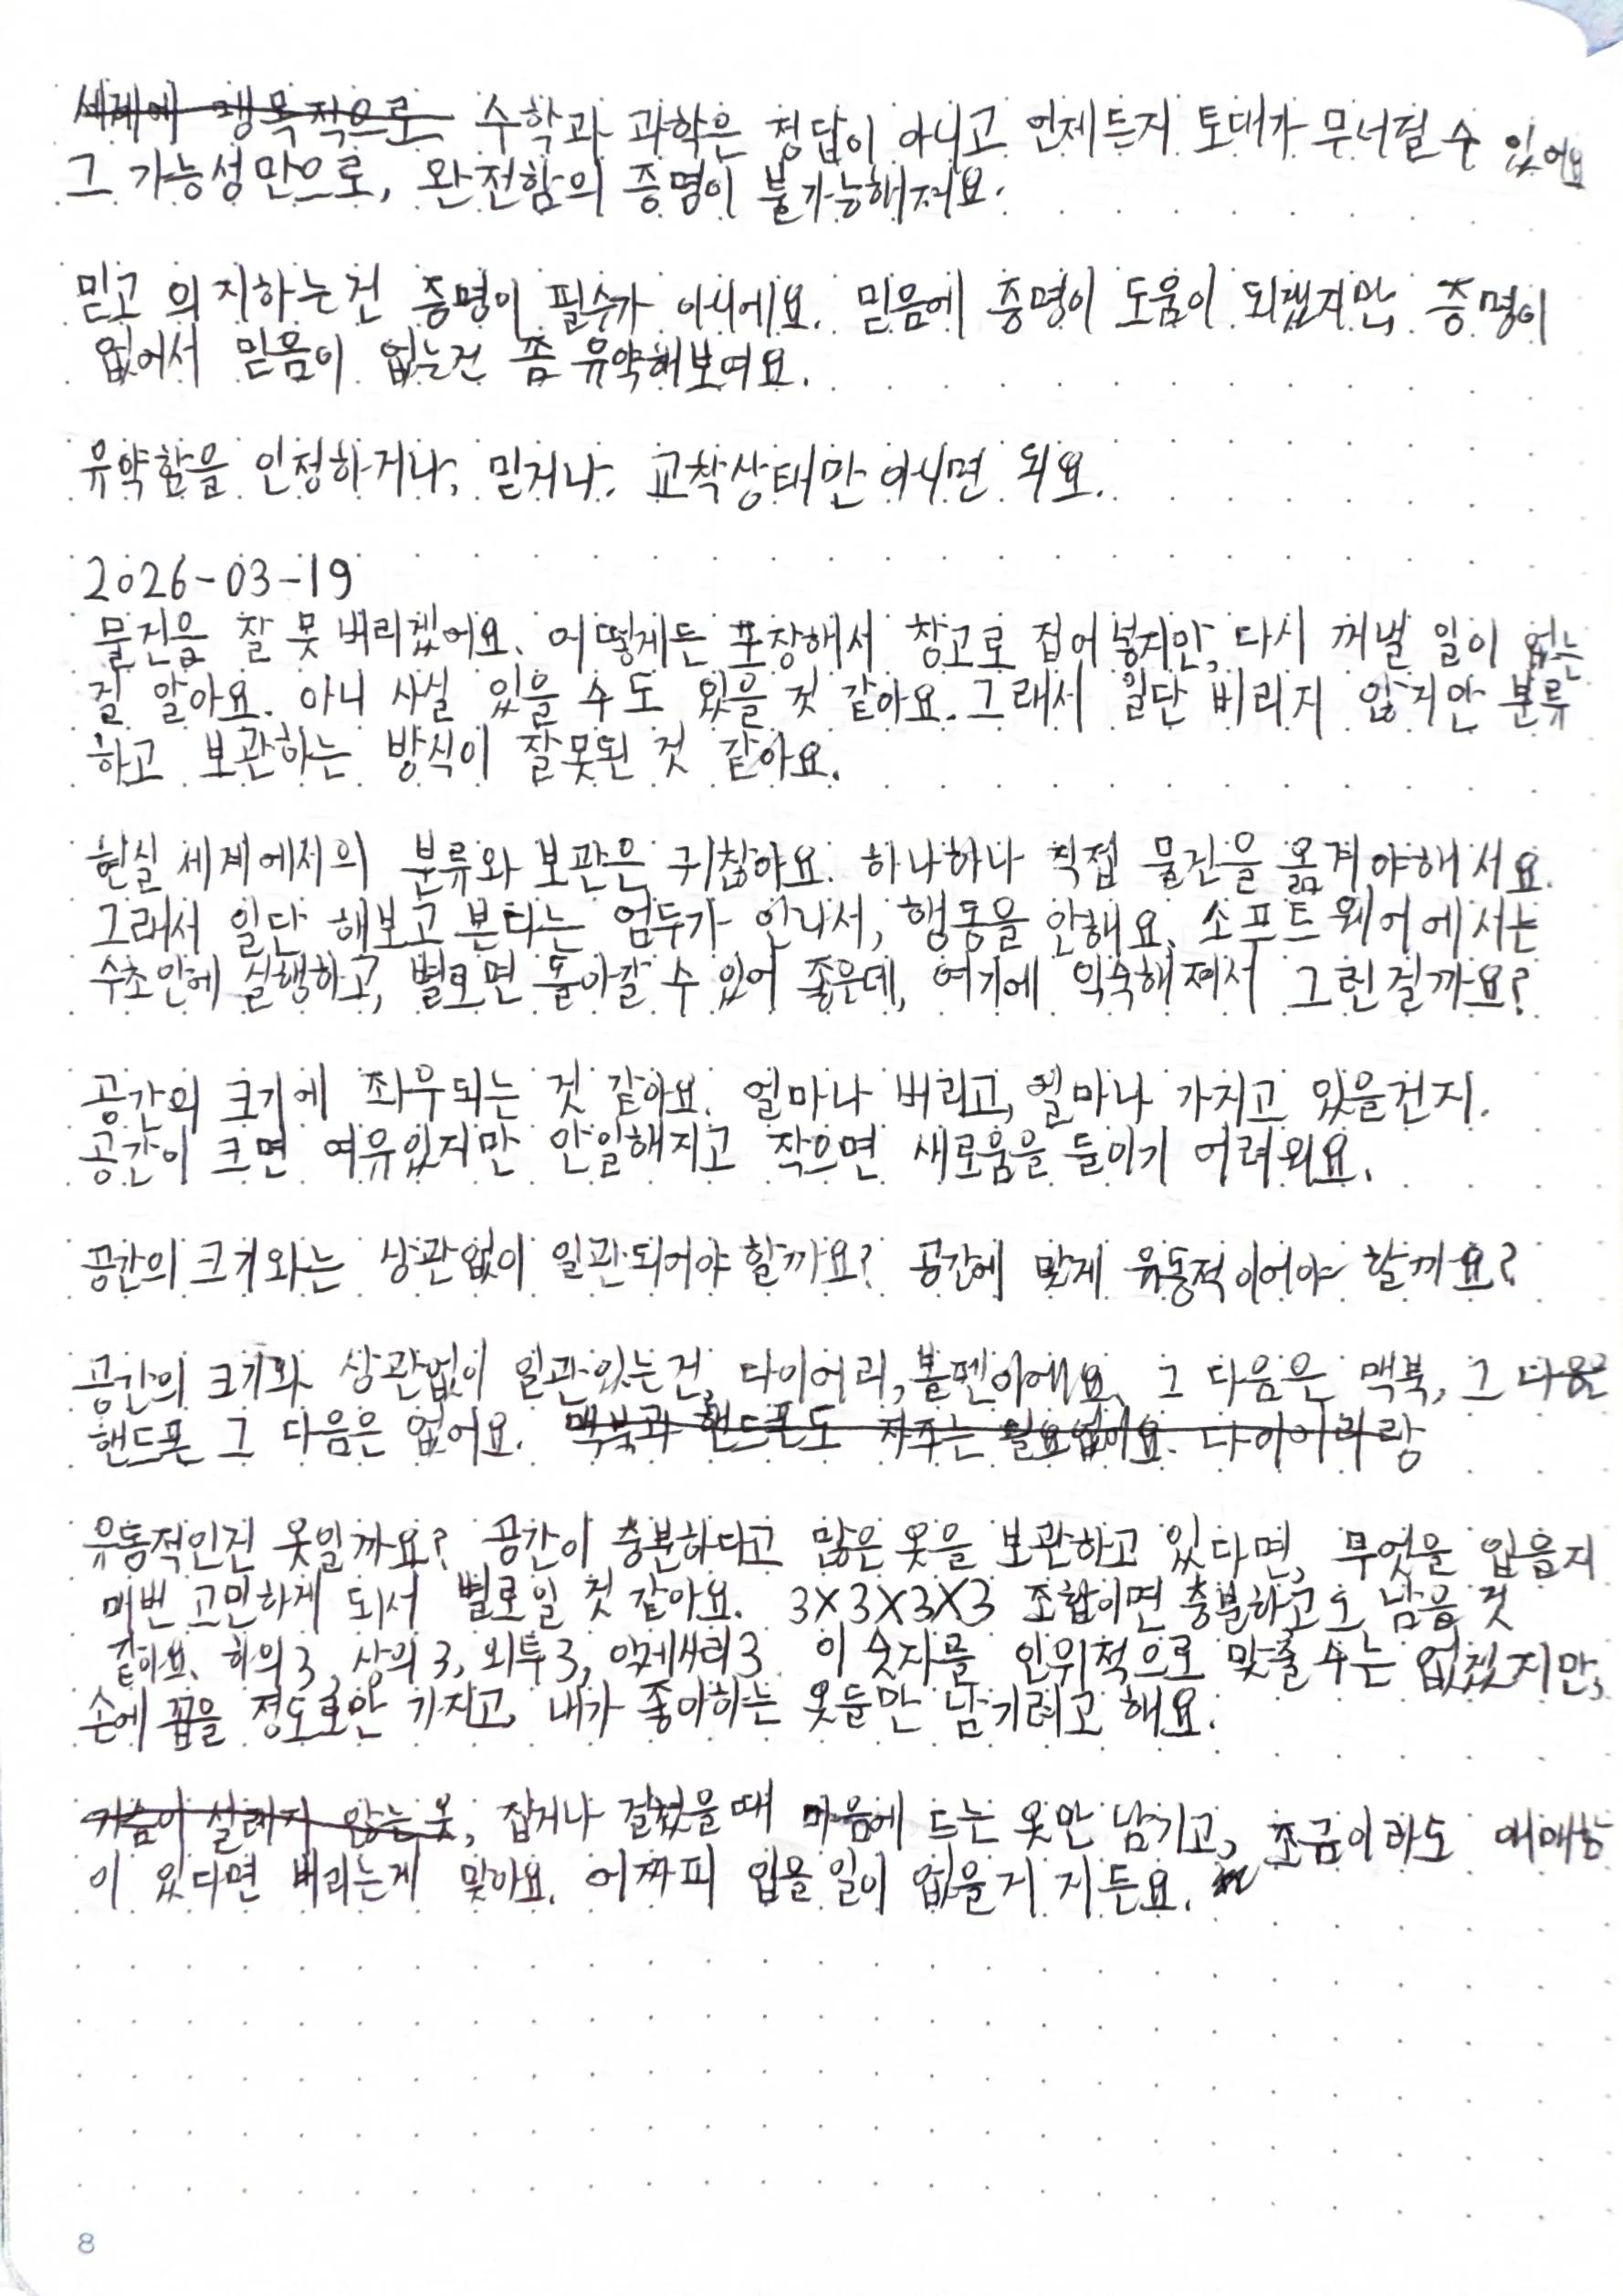 세계에 맹목적으로 수학과 과학은 정답이 아니고 언제든지 토대가 무너질 수 있어요
그 가능성만으로, 완전함의 증명이 불가능해져요.
믿고 의지하는건 증명이 필수가 아니에요. 믿음에 증명이 도움이 되겠지만, 증명이
없어서 믿음이 없는건 쫌 유약해보여요.
유약함을 인정하거나, 믿거나. 교착상태만 아니면 되요.
2026-03-19
물건을 잘 못 버리겠어요. 어떻게든 포장해서 창고로 집어넣지만, 다시 꺼낼 일이 없는
걸 알아요. 아니 사실 있을 수도 있을 것 같아요. 그래서 일단 버리지 않지만 분류
하고 보관하는 방식이 잘못된 것 같아요.
현실 세계에서의 분류와 보관은 귀찮아요. 하나하나 직접 물건을 옮겨야해서요.
그래서 일단 해보고 본다는 엄두가 안나서, 행동을 안해요. 소프트웨어에서는
수초안에 실행하고, 별로면 돌아갈 수 있어 좋은데, 여기에 익숙해져서 그런걸까요?
공간의 크기에 좌우되는 것 같아요. 얼마나 버리고, 얼마나 가지고 있을건지.
공간이 크면 여유있지만 안일해지고 작으면 새로움을 들이기 어려워요.
공간의 크기와는 상관없이 일관되어야 할까요? 공간에 맞게 유동적이어야 할까요?
공간의 크기와 상관없이 일관있는건, 다이어리, 볼펜이에요. 그 다음은 맥북, 그 다음은
핸드폰 그 다음은 없어요. 맥북과 핸드폰도 자주는 필요없어요. 다이어리랑
유동적인건 옷일까요? 공간이 충분하다고 많은 옷을 보관하고 있다면, 무엇을 입을지
매번 고민하게 되서 별로일 것 같아요. 3×3×3×3 조합이면 충분하고도 남을 것
같아요. 하의3, 상의3, 외투3, 악세서리3. 이 숫자를 인위적으로 맞출 수는 없겠지만,
손에 꼽을 정도로만 가지고, 내가 좋아하는 옷들만 남기려고 해요.
가슴이 설레지 않는 옷, 잡거나 걸쳤을때 마음에 드는 옷만 남기고, 조금이라도 애매함
이 있다면 버리는게 맞아요. 어짜피 입을 일이 없을거 거든요.
8